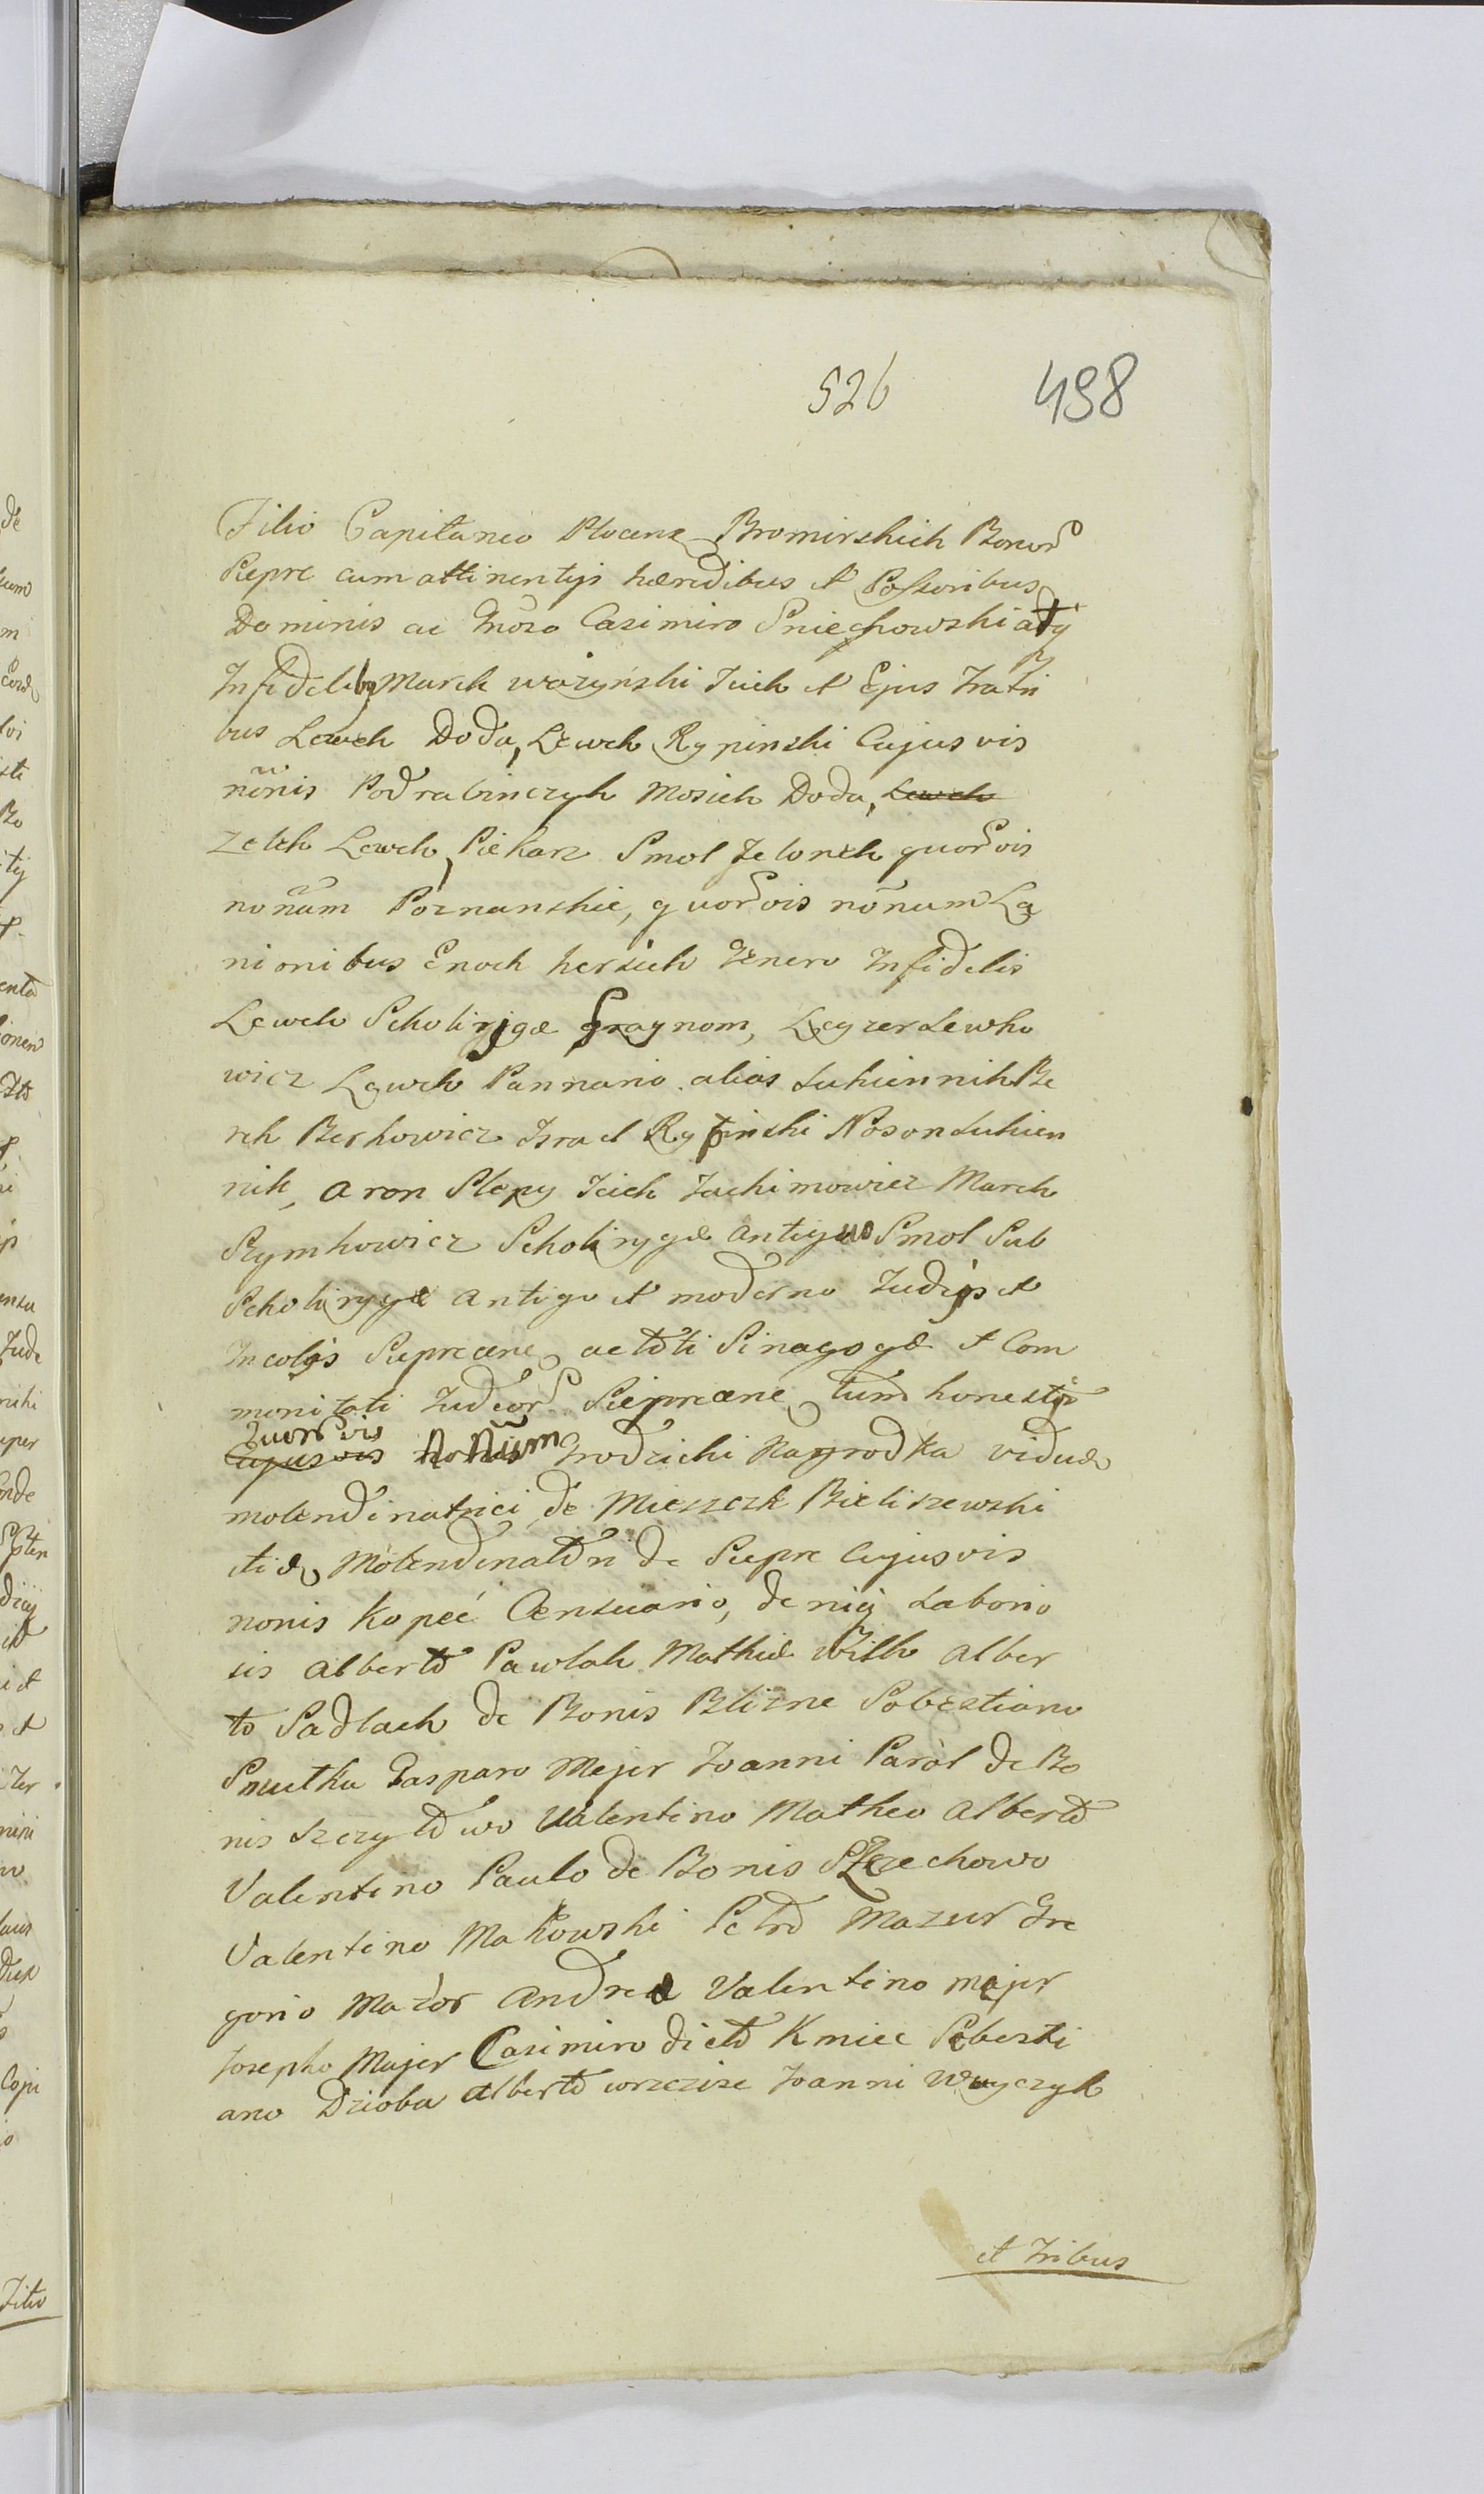 526 498
Filio Capitaneo Plocens Bromirskich Bonor
Siepre cum attinentijs hæredibus et Possoribus
Dominis ac Gnoso Casimiro Sniechowski atq
Infidelibq Marek Icick et Ejus Fratri
bus Lewek Doda, Lewek Rypinski Cujusvis
nonis Podrabinczyk Mosiek Doda, Lewek
Zelek Lewek, Piekarz Smol Jelonek quorvis
nonum Poznanskie, quorvis nonum La
nionibus Enoch herszek Genero Infidelis
Lewek Scholirygæ Leyzer Lewko
wicz Lewek Pannario alias Sukiennik Be
rek Berkowicz Israel Rypinski Noson Sukien
nik, Aron Slepy Icick Jachimowicz Marek
Szymkowicz Scholirygæ Antiquo Smol Sub
Scholirygæ Antiquo et moderno Judæis et
Incolis Siepreciene ac toti Sinagogæ et Com
munitati Judeor Siepreciene tum honestis
quorvis
Cujusvis nonum Grodzicki Nagrodka viduæ
molendinatrici de Mieszczk Bieliszewski
itidem Molendinatori de Siepre Cujusvis
nonis Kopeć Censuario, deniq Laborio
sis Alberto Pawlak Mathiæ Wilk Alber
to Sadlack de Bonis Blizne Sobestiano
Smutka Gasparo Majer Joanni Karol de Bo
nis Szczytowo Valentino Matheo Alberto
Valentino Paulo de Bonis
Valentino Makowski Petro Mazur Gre
gorio Mazor Andreæ Valentino Majer
Josepho Majer Casimiro dicto Kmiec Sebesti
ano Dzioba Alberto Joanni
et Tribus